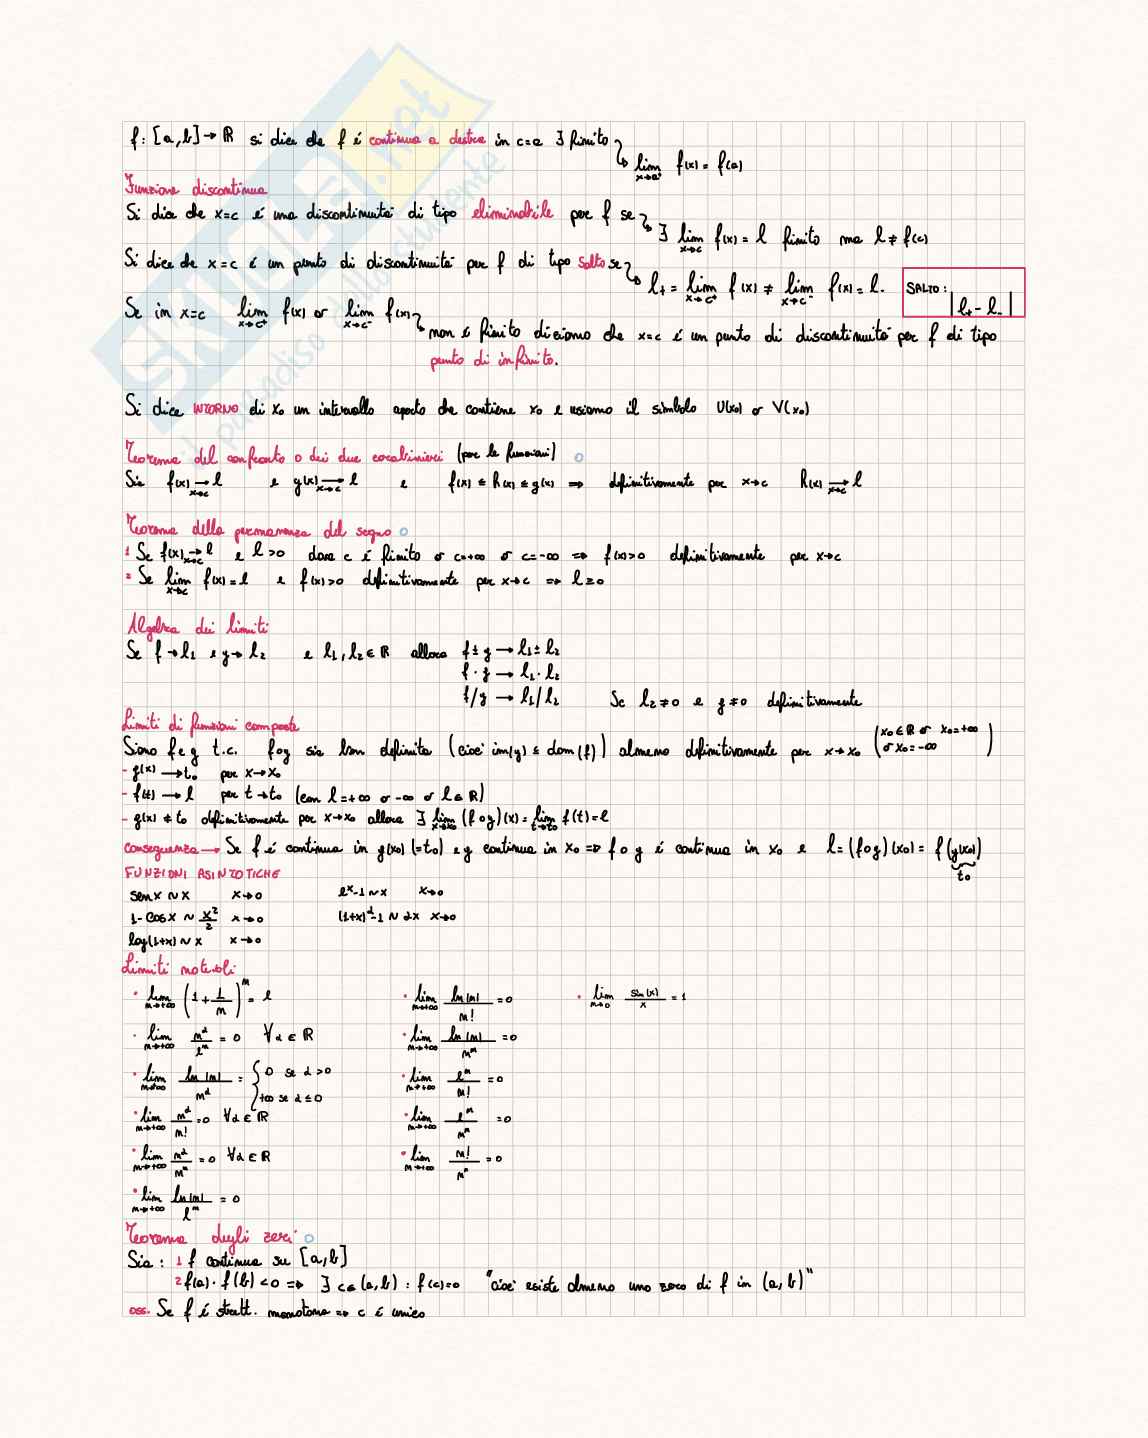 f: [a,b] → ℝ si dice che f é continua a destra in c=a ∃ finito
lim x→a⁺ f(x) = f(a)
Funzione discontinua
Si dice che x=c é una discontinuitá di tipo eliminabile per f se
∃ lim x→c f(x) = l finito ma l ≠ f(c)
Si dice che x=c é un punto di discontinuitá per f di tipo salto se
l₊ = lim x→c⁺ f(x) ≠ lim x→c⁻ f(x) = l₋
SALTO: |l₊ - l₋|
Se in x=c lim x→c⁺ f(x) or lim x→c⁻ f(x)
non é finito diciamo che x=c é un punto di discontinuitá per f di tipo
punto di infinito.
Si dice INTORNO di x₀ un intervallo aperto che contiene x₀ e usiamo il simbolo U(x₀) or V(x₀)
Teorema del confronto o dei due carabinieri (per le funzioni)
Sia f(x) → l x→c e g(x) → l x→c e f(x) ≤ h(x) ≤ g(x) ⇒ definitivamente per x→c h(x) → l x→c
Teorema della permanenza del segno
1 Se f(x) → l x→c e l>0 dove c é finito or c=+∞ or c=-∞ ⇒ f(x)>0 definitivamente per x→c
2 Se lim x→c f(x) = l e f(x)>0 definitivamente per x→c ⇒ l≥0
Algebra dei limiti
Se f→l₁ e g→l₂ e l₁,l₂ ∈ ℝ allora f±g → l₁±l₂
f·g → l₁·l₂
f/g → l₁/l₂ Se l₂≠0 e g≠0 definitivamente
Limiti di funzioni composte
Siano f e g t.c. fog sia ben definita (cioé im(g) ⊆ dom(f)) almeno definitivamente per x→x₀ (x₀∈ℝ or x₀=+∞ or x₀=-∞)
- g(x) → t₀ per x→x₀
- f(t) → l per t→t₀ (con l=+∞ or -∞ or l∈ℝ)
- g(x) ≠ t₀ definitivamente per x→x₀ allora ∃ lim x→x₀ (fog)(x) = lim t→t₀ f(t)=l
conseguenza → Se f é continua in g(x₀) (=t₀) e g continua in x₀ ⇒ fog é continua in x₀ e l=(fog)(x₀) = f(g(x₀))
t₀
FUNZIONI ASINTOTICHE
senx ~ x x→0 eˣ-1 ~ x x→0
1-cosx ~ x²/2 x→0 (1+x)^α-1 ~ αx x→0
log(1+x) ~ x x→0
Limiti notevoli
• lim n→+∞ (1+1/n)ⁿ = e • lim n→+∞ ln(n)/n! = 0 • lim n→0 sin(x)/x = 1
• lim n→+∞ n^α/eⁿ = 0 ∀α∈ℝ • lim n→+∞ ln(n)/nⁿ = 0
• lim n→+∞ ln(n)/n^α = {0 se α>0 +∞ se α≤0 • lim n→+∞ eⁿ/n! = 0
• lim n→+∞ n^α/n! = 0 ∀α∈ℝ • lim n→+∞ eⁿ/nⁿ = 0
• lim n→+∞ n^α/nⁿ = 0 ∀α∈ℝ • lim n→+∞ n!/nⁿ = 0
• lim n→+∞ ln(n)/eⁿ = 0
Teorema degli zeri
Sia: 1 f continua su [a,b]
2 f(a)·f(b)<0 ⇒ ∃ c∈(a,b) : f(c)=0 "cioé esiste almeno uno zero di f in (a,b)"
oss. Se f é strett. monotona ⇒ c é unico
SKUOLA.net
il paradiso dello studente